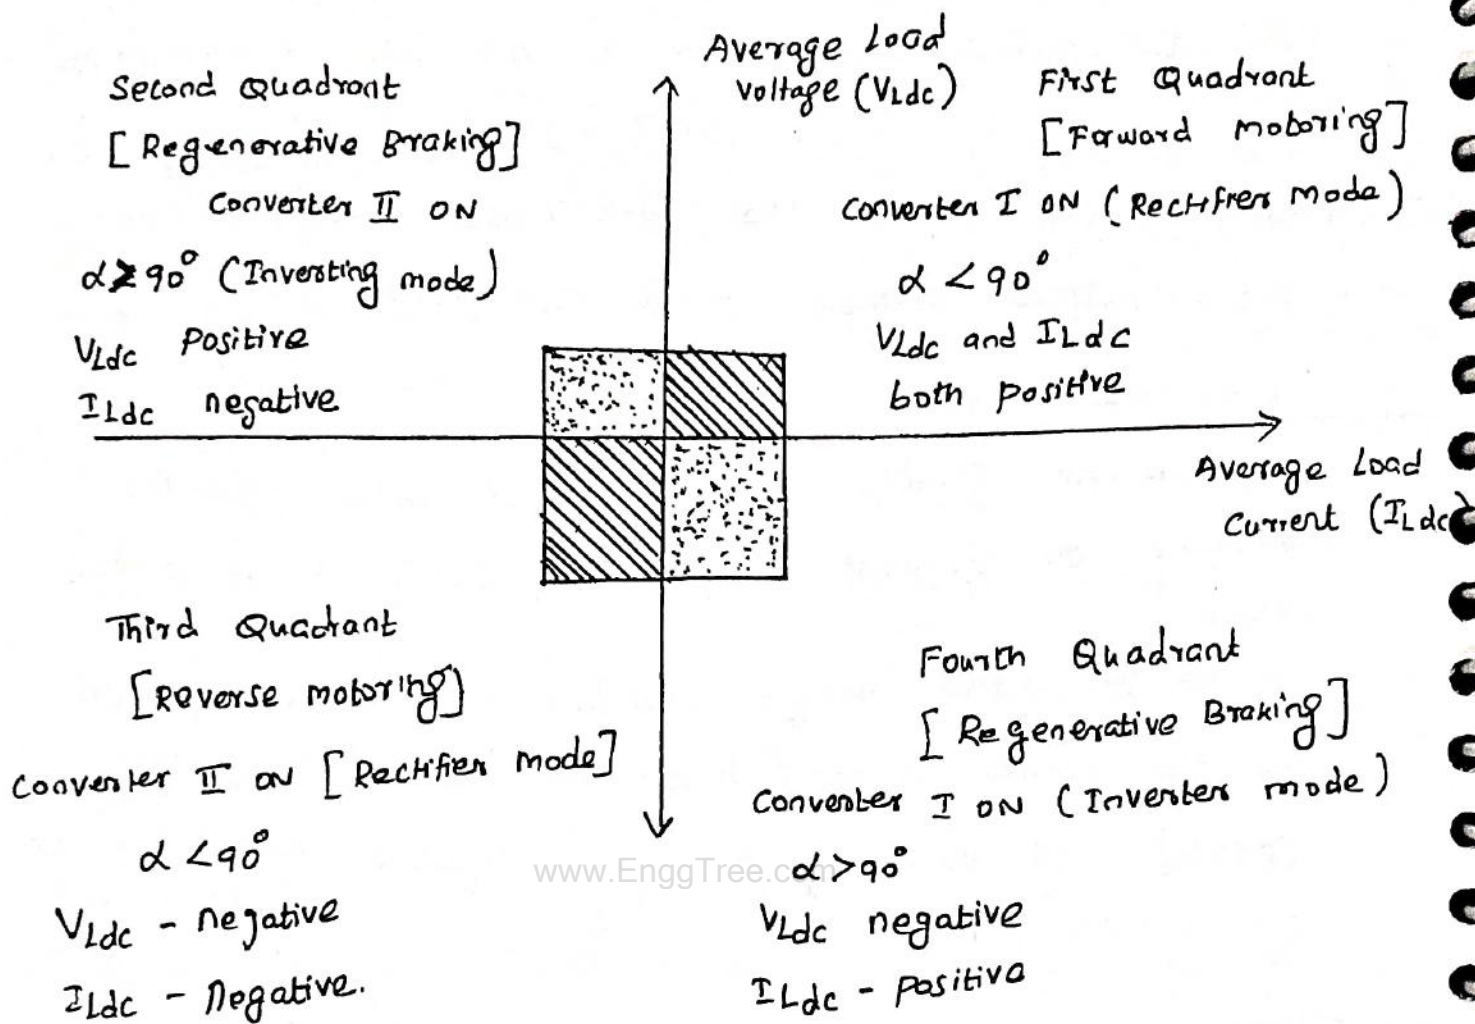 Average Load
Voltage (VLdc)
Second Quadrant
[Regenerative Braking]
Converter II ON
α ≥ 90° (Inverting mode)
VLdc Positive
ILdc negative
First Quadrant
[Forward motoring]
Converter I ON (Rectifier Mode)
α < 90°
VLdc and ILdc
both positive
Average Load
Current (ILdc)
Third Quadrant
[Reverse motoring]
Converter II ON [Rectifier mode]
α < 90°
VLdc - negative
ILdc - Negative.
Fourth Quadrant
[Regenerative Braking]
Converter I ON (Inverter mode)
α > 90°
VLdc negative
ILdc - positive
www.EnggTree.com